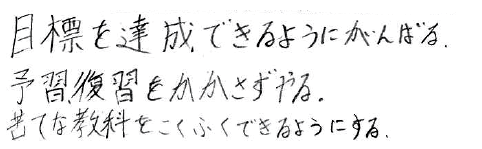 目標を達成できるようにがんばる.
予習,復習をかかさずやる.
苦てな教科をこくふくできるようにする.